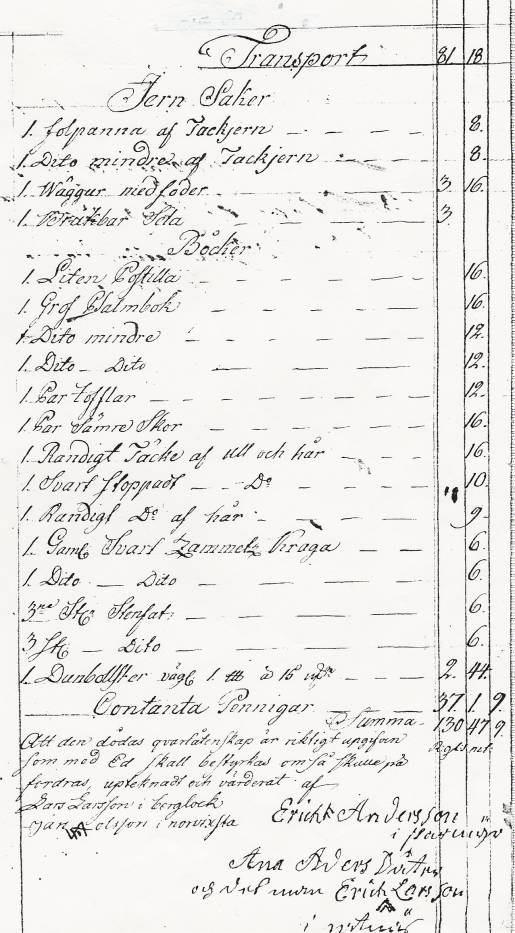 Transport 81 18
Jern Saker
1. folpanna af Tackjern 8.
1. Dito mindre af Tackjern 8
1. Wäggur med foder 3. 16.
1. Bräkbar Sela 3
Böcker
1. Liten Postilla 16.
1. Grof Psalmbok 16.
1. Dito mindre 12.
1. Dito Dito 12.
1. Par tofflar 12.
1. Par Sämre Skor 16.
1. Randigt Täcke af ull och hår 16.
1. Svart stoppadt Do 10.
1. Randigt Do af hår 9
1. Gaml Svart Zammetz Kraga 6.
1. Dito Dito 6.
3ne Stc Stenfat 6.
3 Stc Dito 6.
1. Dunbolster vägr 1. à 15 2. 44.
Contanta Pennigar 37. 1. 9.
Summa 130 47 9.
Att den dödas qvarlåtenskap är riktigt upgifven Rgds
som med Ed skall bestyrkas om så skulle på
fordras, uptecknadt och värderat af
Lars Larsson i berglock
Olsson i norvixsta
Erichk Andersson
i
Ana Aders Dåter
och det man Erich Larsson
i